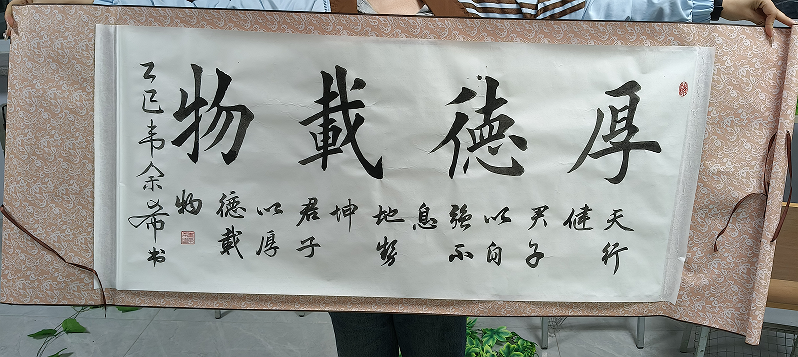 厚德載物
天行
健
君子
以自
強不
息
地势
坤
君子
以厚
德載
物
乙巳韦余希书